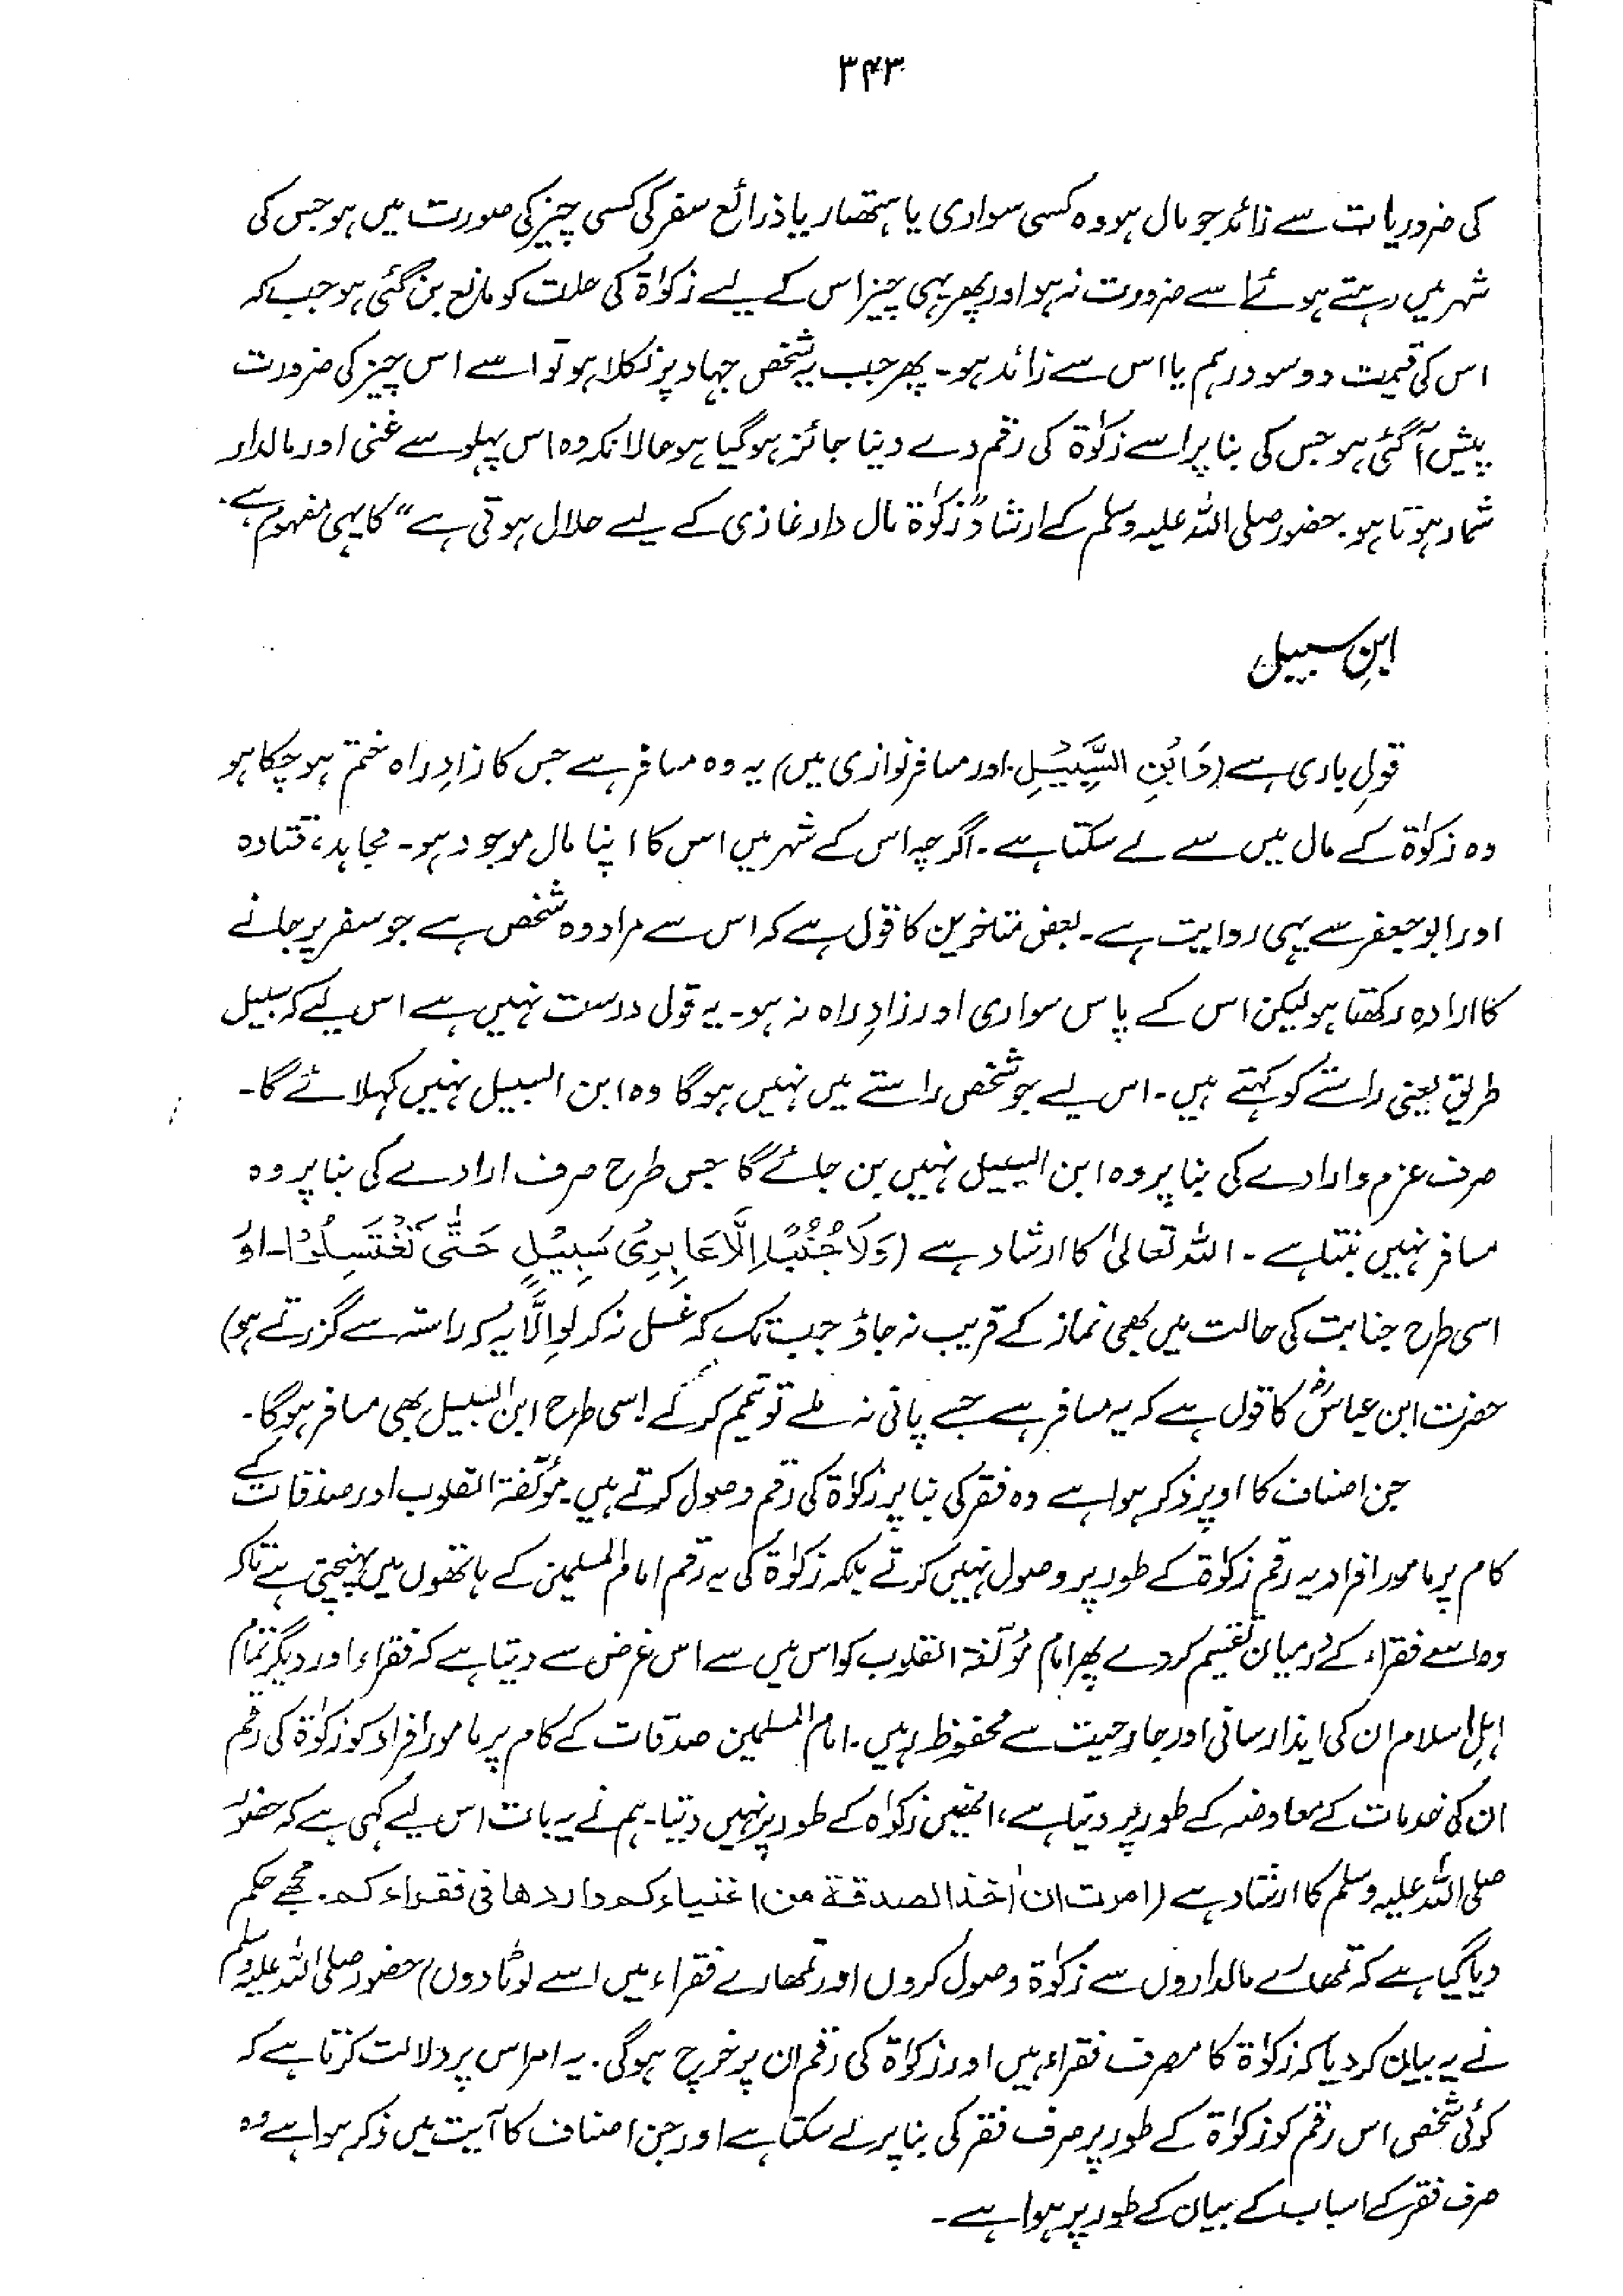 ۳۴۳
کی ضروریات سے زائد جو مال ہو وہ کسی سواری یا ہتھیار یا ذرائع سفر کی کسی چیز کی صورت میں ہو جس کی
شہر میں رہتے ہوئے اسے ضرورت نہ ہو اور پھر یہی چیز اس کے لیے زکوٰۃ کی حلت کو مانع بن گئی ہو جب کہ
اس کی قیمت دو سو درہم یا اس سے زائد ہو۔ پھر جب یہ شخص جہاد پر نکلا ہو تو اسے اس چیز کی ضرورت
پیش آ گئی ہو جس کی بنا پر اسے زکوٰۃ کی رقم دے دینا جائز ہو گیا ہو حالانکہ وہ اس پہلو سے غنی اور مالدار
شمار ہوتا ہو۔ حضور صلی اللہ علیہ وسلم کے ارشاد "زکوٰۃ مال دار غازی کے لیے حلال ہوتی ہے" کا یہی مفہوم ہے۔
ابنِ سبیل
قولِ باری ہے (وَابْنِ السَّبِيْلِ۔ اور مسافر نوازی میں) یہ وہ مسافر ہے جس کا زادِ راہ ختم ہو چکا ہو
وہ زکوٰۃ کے مال میں سے لے سکتا ہے۔ اگرچہ اس کے شہر میں اس کا اپنا مال موجود ہو۔ مجاہد، قتادہ
اور ابو جعفر سے یہی روایت ہے۔ بعض متاخرین کا قول ہے کہ اس سے مراد وہ شخص ہے جو سفر پر جانے
کا ارادہ رکھتا ہو لیکن اس کے پاس سواری اور زادِ راہ نہ ہو۔ یہ قول درست نہیں ہے اس لیے کہ سبیل
طریق یعنی راستے کو کہتے ہیں۔ اس لیے جو شخص راستے میں نہیں ہو گا وہ ابن السبیل نہیں کہلائے گا۔
صرف عزم و ارادے کی بنا پر وہ ابن السبیل نہیں بن جائے گا جس طرح صرف ارادے کی بنا پر وہ
مسافر نہیں بنتا ہے۔ اللہ تعالیٰ کا ارشاد ہے (وَلَا جُنُبًا اِلَّا عَابِرِیْ سَبِیْلٍ حَتّٰی تَغْتَسِلُوْا۔ اور
اسی طرح جنابت کی حالت میں بھی نماز کے قریب نہ جاؤ جب تک کہ غسل نہ کر لو اِلَّا یہ کہ راستہ سے گزرتے ہو)
حضرت ابن عباسؓ کا قول ہے کہ یہ مسافر ہے جسے پانی نہ ملے تو تیمم کر لے اسی طرح ابن السبیل بھی مسافر ہو گا۔
جن اصناف کا اوپر ذکر ہوا ہے وہ فقر کی بنا پر زکوٰۃ کی رقم وصول کرتے ہیں۔ مؤلفۃ القلوب اور صدقات کے
کام پر مامور افراد یہ رقم زکوٰۃ کے طور پر وصول نہیں کرتے بلکہ زکوٰۃ کی یہ رقم امام المسلمین کے ہاتھوں میں پہنچتی ہے تاکہ
وہ اسے فقراء کے درمیان تقسیم کر دے پھر امام مؤلفۃ القلوب کو اس میں سے اس غرض سے دیتا ہے کہ فقراء اور دیگر تمام
اہلِ اسلام ان کی ایذا رسانی اور جارحیت سے محفوظ رہیں۔ امام المسلمین صدقات کے کام پر مامور افراد کو زکوٰۃ کی رقم
ان کی خدمات کے معاوضہ کے طور پر دیتا ہے، انھیں زکوٰۃ کے طور پر نہیں دیتا۔ ہم نے یہ بات اس لیے کہی ہے کہ حضور
صلی اللہ علیہ وسلم کا ارشاد ہے (امرت ان اٰخذ الصدقة من اغنیاءکم واردها فی فقراءکم۔ مجھے حکم
دیا گیا ہے کہ تمھارے مالداروں سے زکوٰۃ وصول کروں اور تمھارے فقراء میں اسے لوٹا دوں) حضور صلی اللہ علیہ وسلم
نے یہ بیان کر دیا کہ زکوٰۃ کا مصرف فقراء ہیں اور زکوٰۃ کی رقم ان پر خرچ ہو گی۔ یہ امر اس پر دلالت کرتا ہے کہ
کوئی شخص اس رقم کو زکوٰۃ کے طور پر صرف فقر کی بنا پر لے سکتا ہے اور جن اصناف کا آیت میں ذکر ہوا ہے وہ
صرف فقر کے اسباب کے بیان کے طور پر ہوا ہے۔